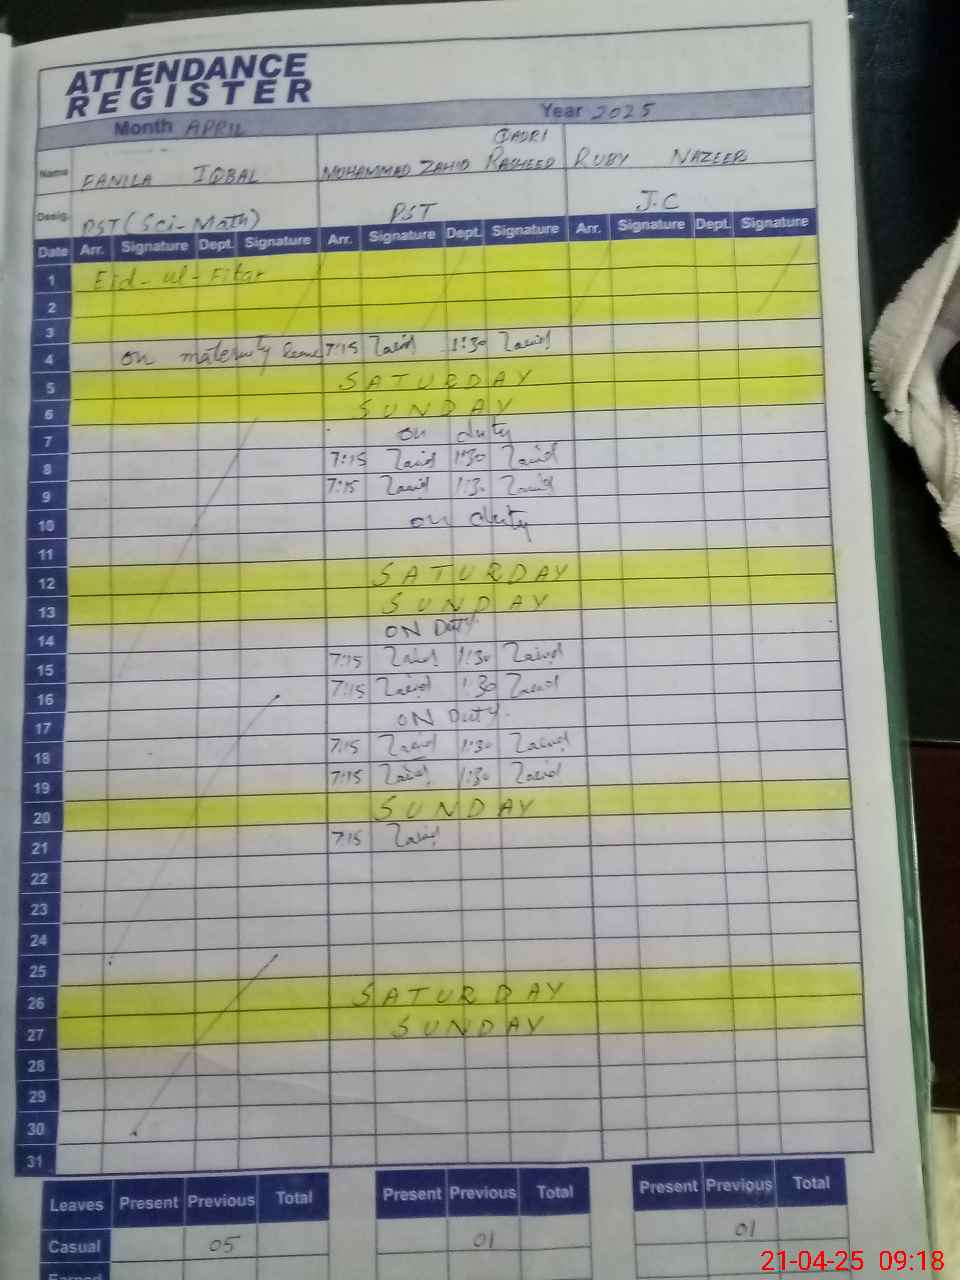 ATTENDANCE
REGISTER
Month APRIL Year 2025
Name FANILA IQBAL MUHAMMAD ZAHID RASHEED QADRI RUBY NAZEER
Desig. PST (Sci-Math) PST J.C
Date Arr. Signature Dept. Signature Arr. Signature Dept. Signature Arr. Signature Dept. Signature
1 Eid-ul-Fitar
2
3
4 on maternity leave 7:15 Zahid 1:30 Zahid
5 SATURDAY
6 SUNDAY
7 on duty
8 7:15 Zahid 1:30 Zahid
9 7:15 Zahid 1:30 Zahid
10 on duty
11
12 SATURDAY
13 SUNDAY
14 ON Duty.
15 7:15 Zahid 1:30 Zahid
16 7:15 Zahid 1:30 Zahid
17 ON Duty.
18 7:15 Zahid 1:30 Zahid
19 7:15 Zahid 1:30 Zahid
20 SUNDAY
21 7:15 Zahid
22
23
24
25
26 SATURDAY
27 SUNDAY
28
29
30
31
Leaves Present Previous Total Present Previous Total Present Previous Total
Casual 05 01 01
21-04-25 09:18